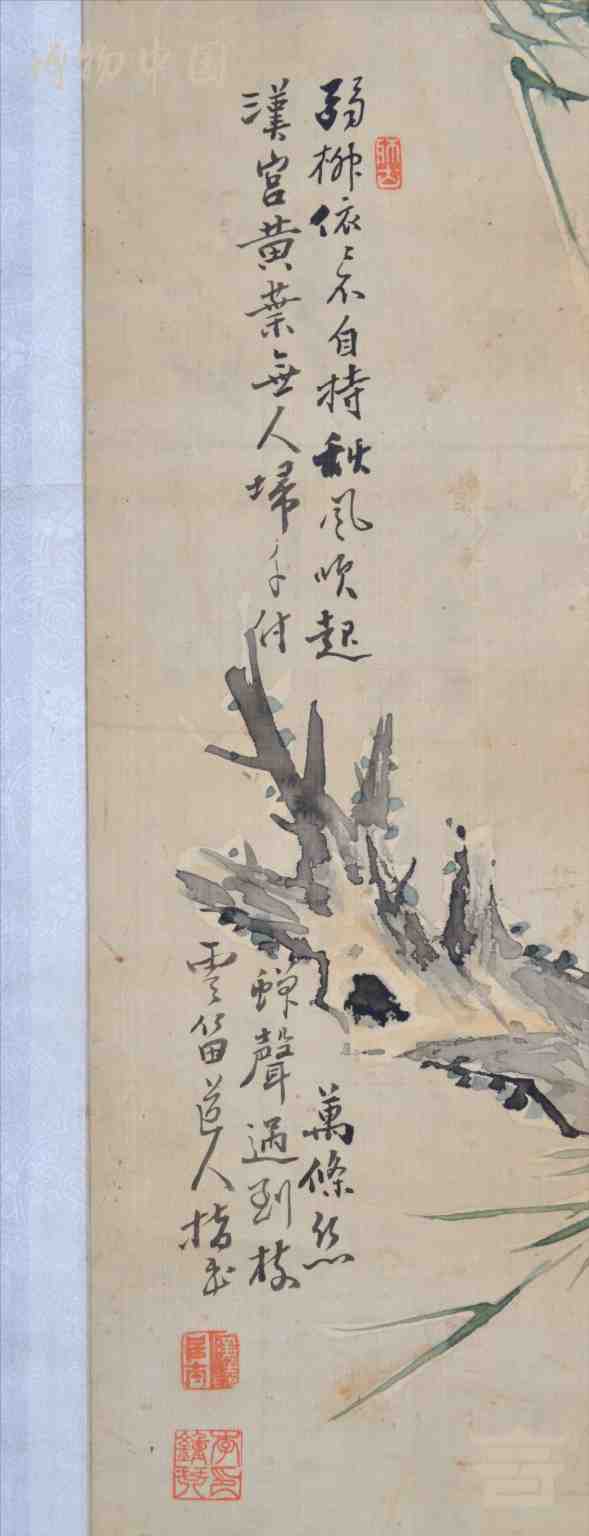 博物中国
弱柳依〻不自持秋風吹起
萬條絲
漢宮黃葉無人埽分付
蟬聲過別枝
雲笛道人指